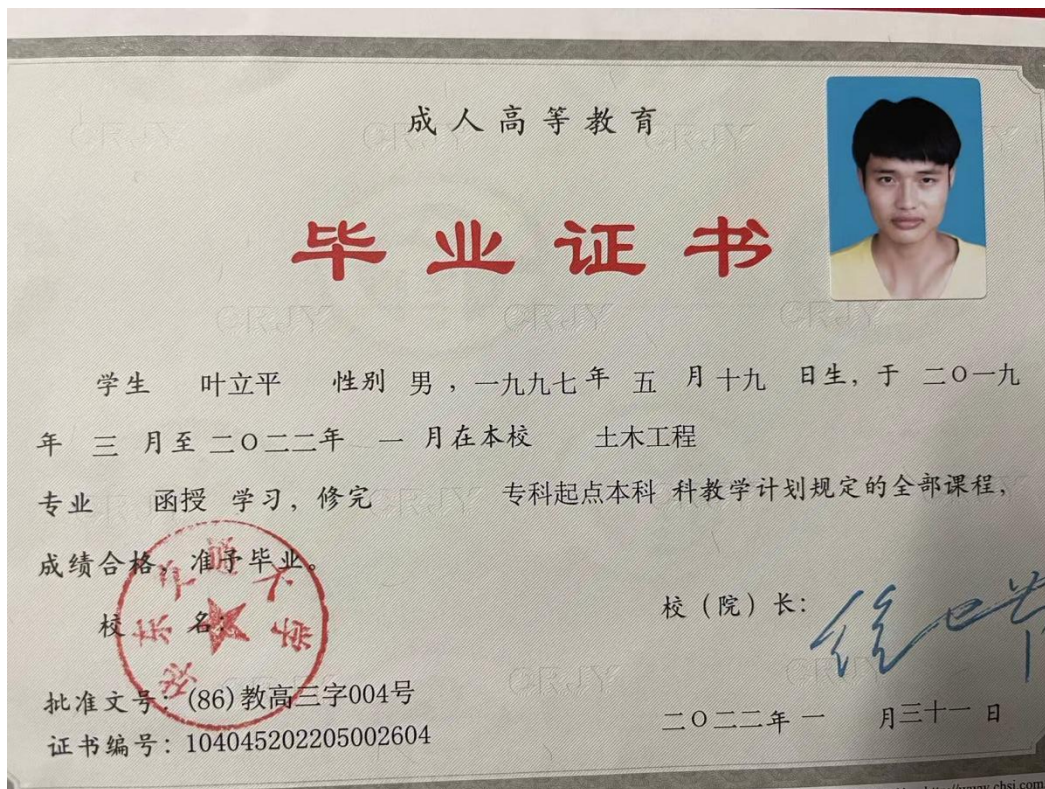 成人高等教育
毕业证书
学生 叶立平 性别 男 ，一九九七年 五 月十九 日生，于 二〇一九
年 三 月至 二〇二二年 一 月在本校 土木工程
专业 函授 学习，修完 专科起点本科 科教学计划规定的全部课程，
成绩合格，准予毕业。
校 名：
华东交通大学
校（院）长：
批准文号：(86)教高三字004号
二〇二二年 一 月三十一 日
证书编号：104045202205002604
CRJY